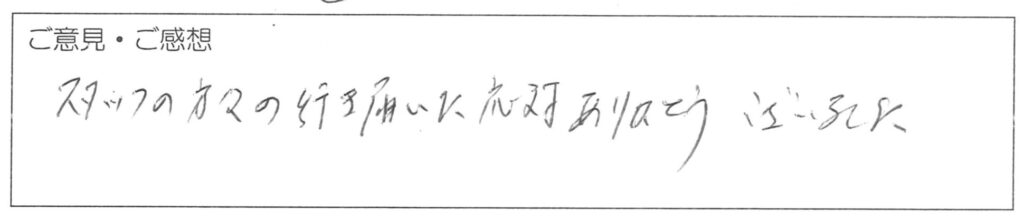 ご意見・ご感想
スタッフの方々の行き届いた応対ありがとうございました